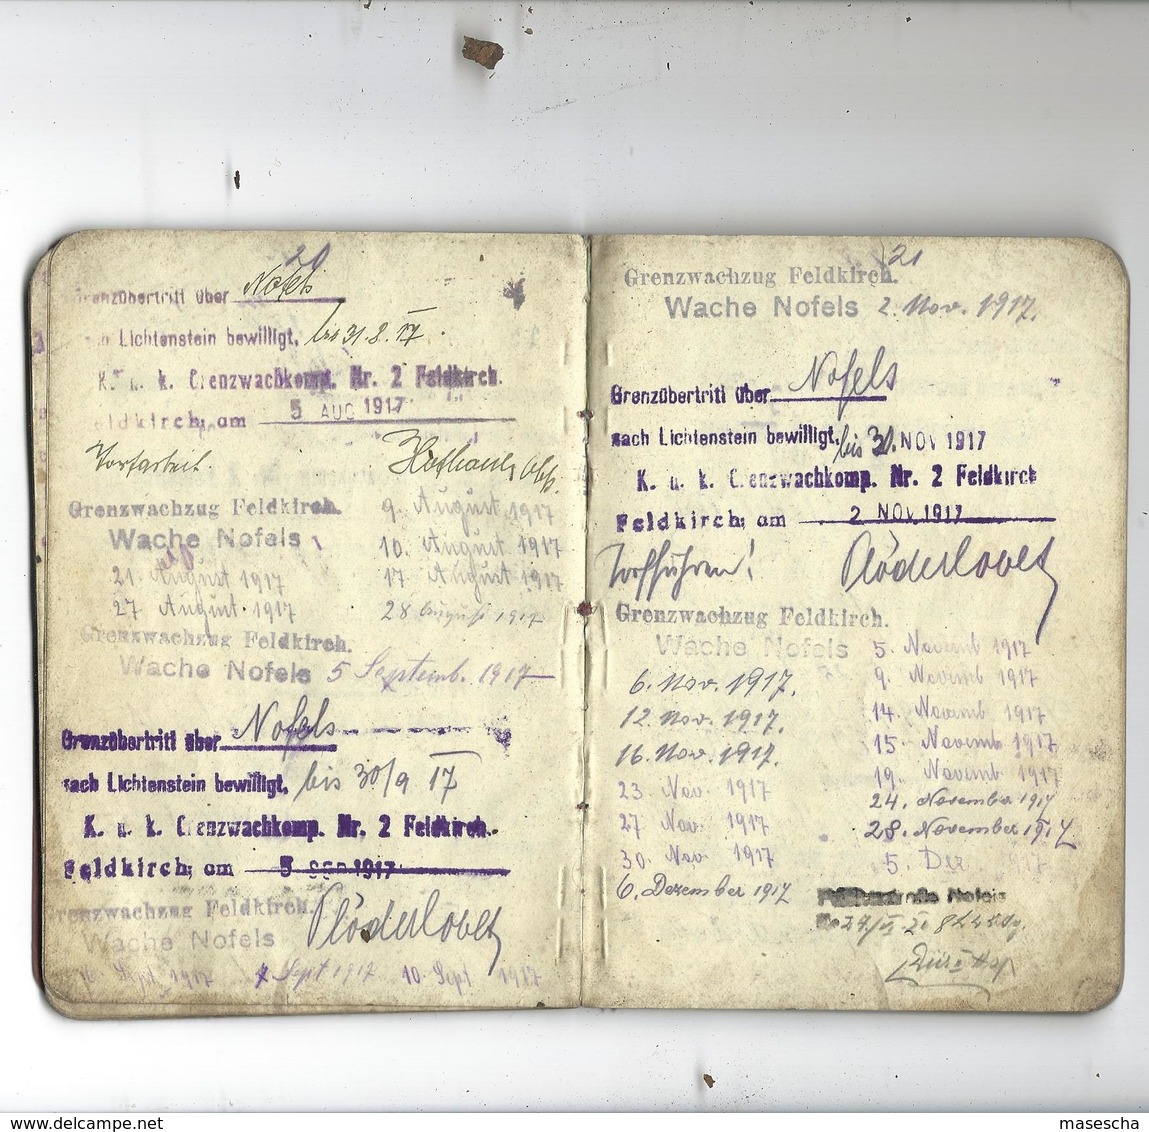 20
Grenzübertritt über Nofels
nach Lichtenstein bewilligt, bis 31.8.17.
K. u. k. Grenzwachkomp. Nr. 2 Feldkirch.
Feldkirch, am 5 AUG 1917
Torfarbeit.
Grenzwachzug Feldkirch. 9. August 1917
Wache Nofels 10. August 1917
21. August 1917 17. August 1917
27 August. 1917 28 August 1917
Grenzwachzug Feldkirch.
Wache Nofels 5 Septemb. 1917
Grenzübertritt über Nofels
nach Lichtenstein bewilligt, bis 30/9 17
K. u. k. Grenzwachkomp. Nr. 2 Feldkirch.
Feldkirch, am 5 SEP 1917
Grenzwachzug Feldkirch.
Wache Nofels
Sept 1917 7 Sept 1917 10. Sept 1917
21
Grenzwachzug Feldkirch.
Wache Nofels 2. Nov. 1917.
Grenzübertritt über Nofels
nach Lichtenstein bewilligt, bis 30. NOV 1917
K. u. k. Grenzwachkomp. Nr. 2 Feldkirch
Feldkirch, am 2 NOV 1917
Torfführen!
Grenzwachzug Feldkirch.
Wache Nofels 5. Novemb 1917
6. Nov. 1917. 9. Novemb 1917
12. Nov. 1917. 14. Novemb 1917
16. Nov. 1917. 15. Novemb 1917
23. Nov. 1917 19. Novemb 1917
27 Nov. 1917 24. November 1917
30. Nov 1917 28. November 1917
6. Dezember 1917 5. Dez. 1917
Nofels
delcampe.net
masescha